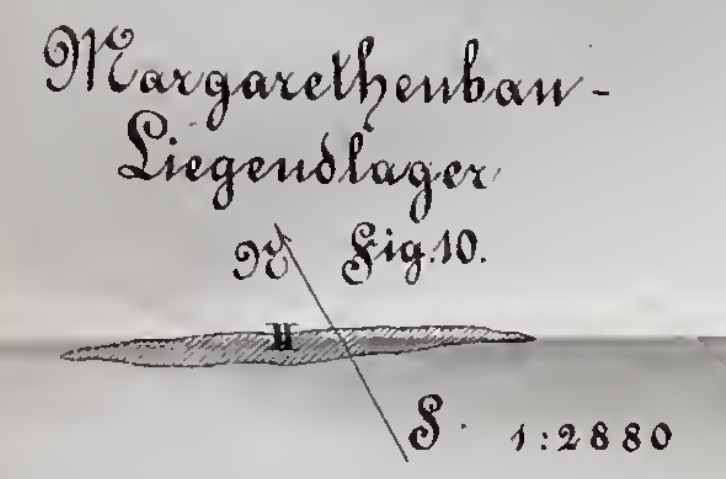 Margarethenbau-
Liegendlager
N Fig. 10.
II
S. 1:2880